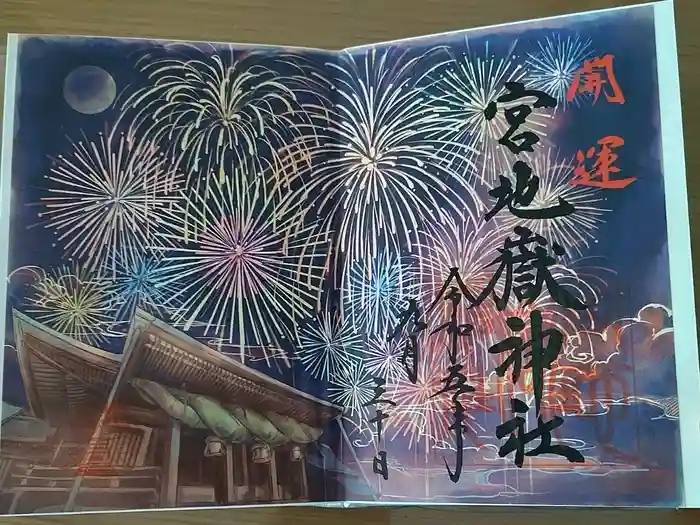 開運
宮地嶽神社
令和五年
九月
三十日